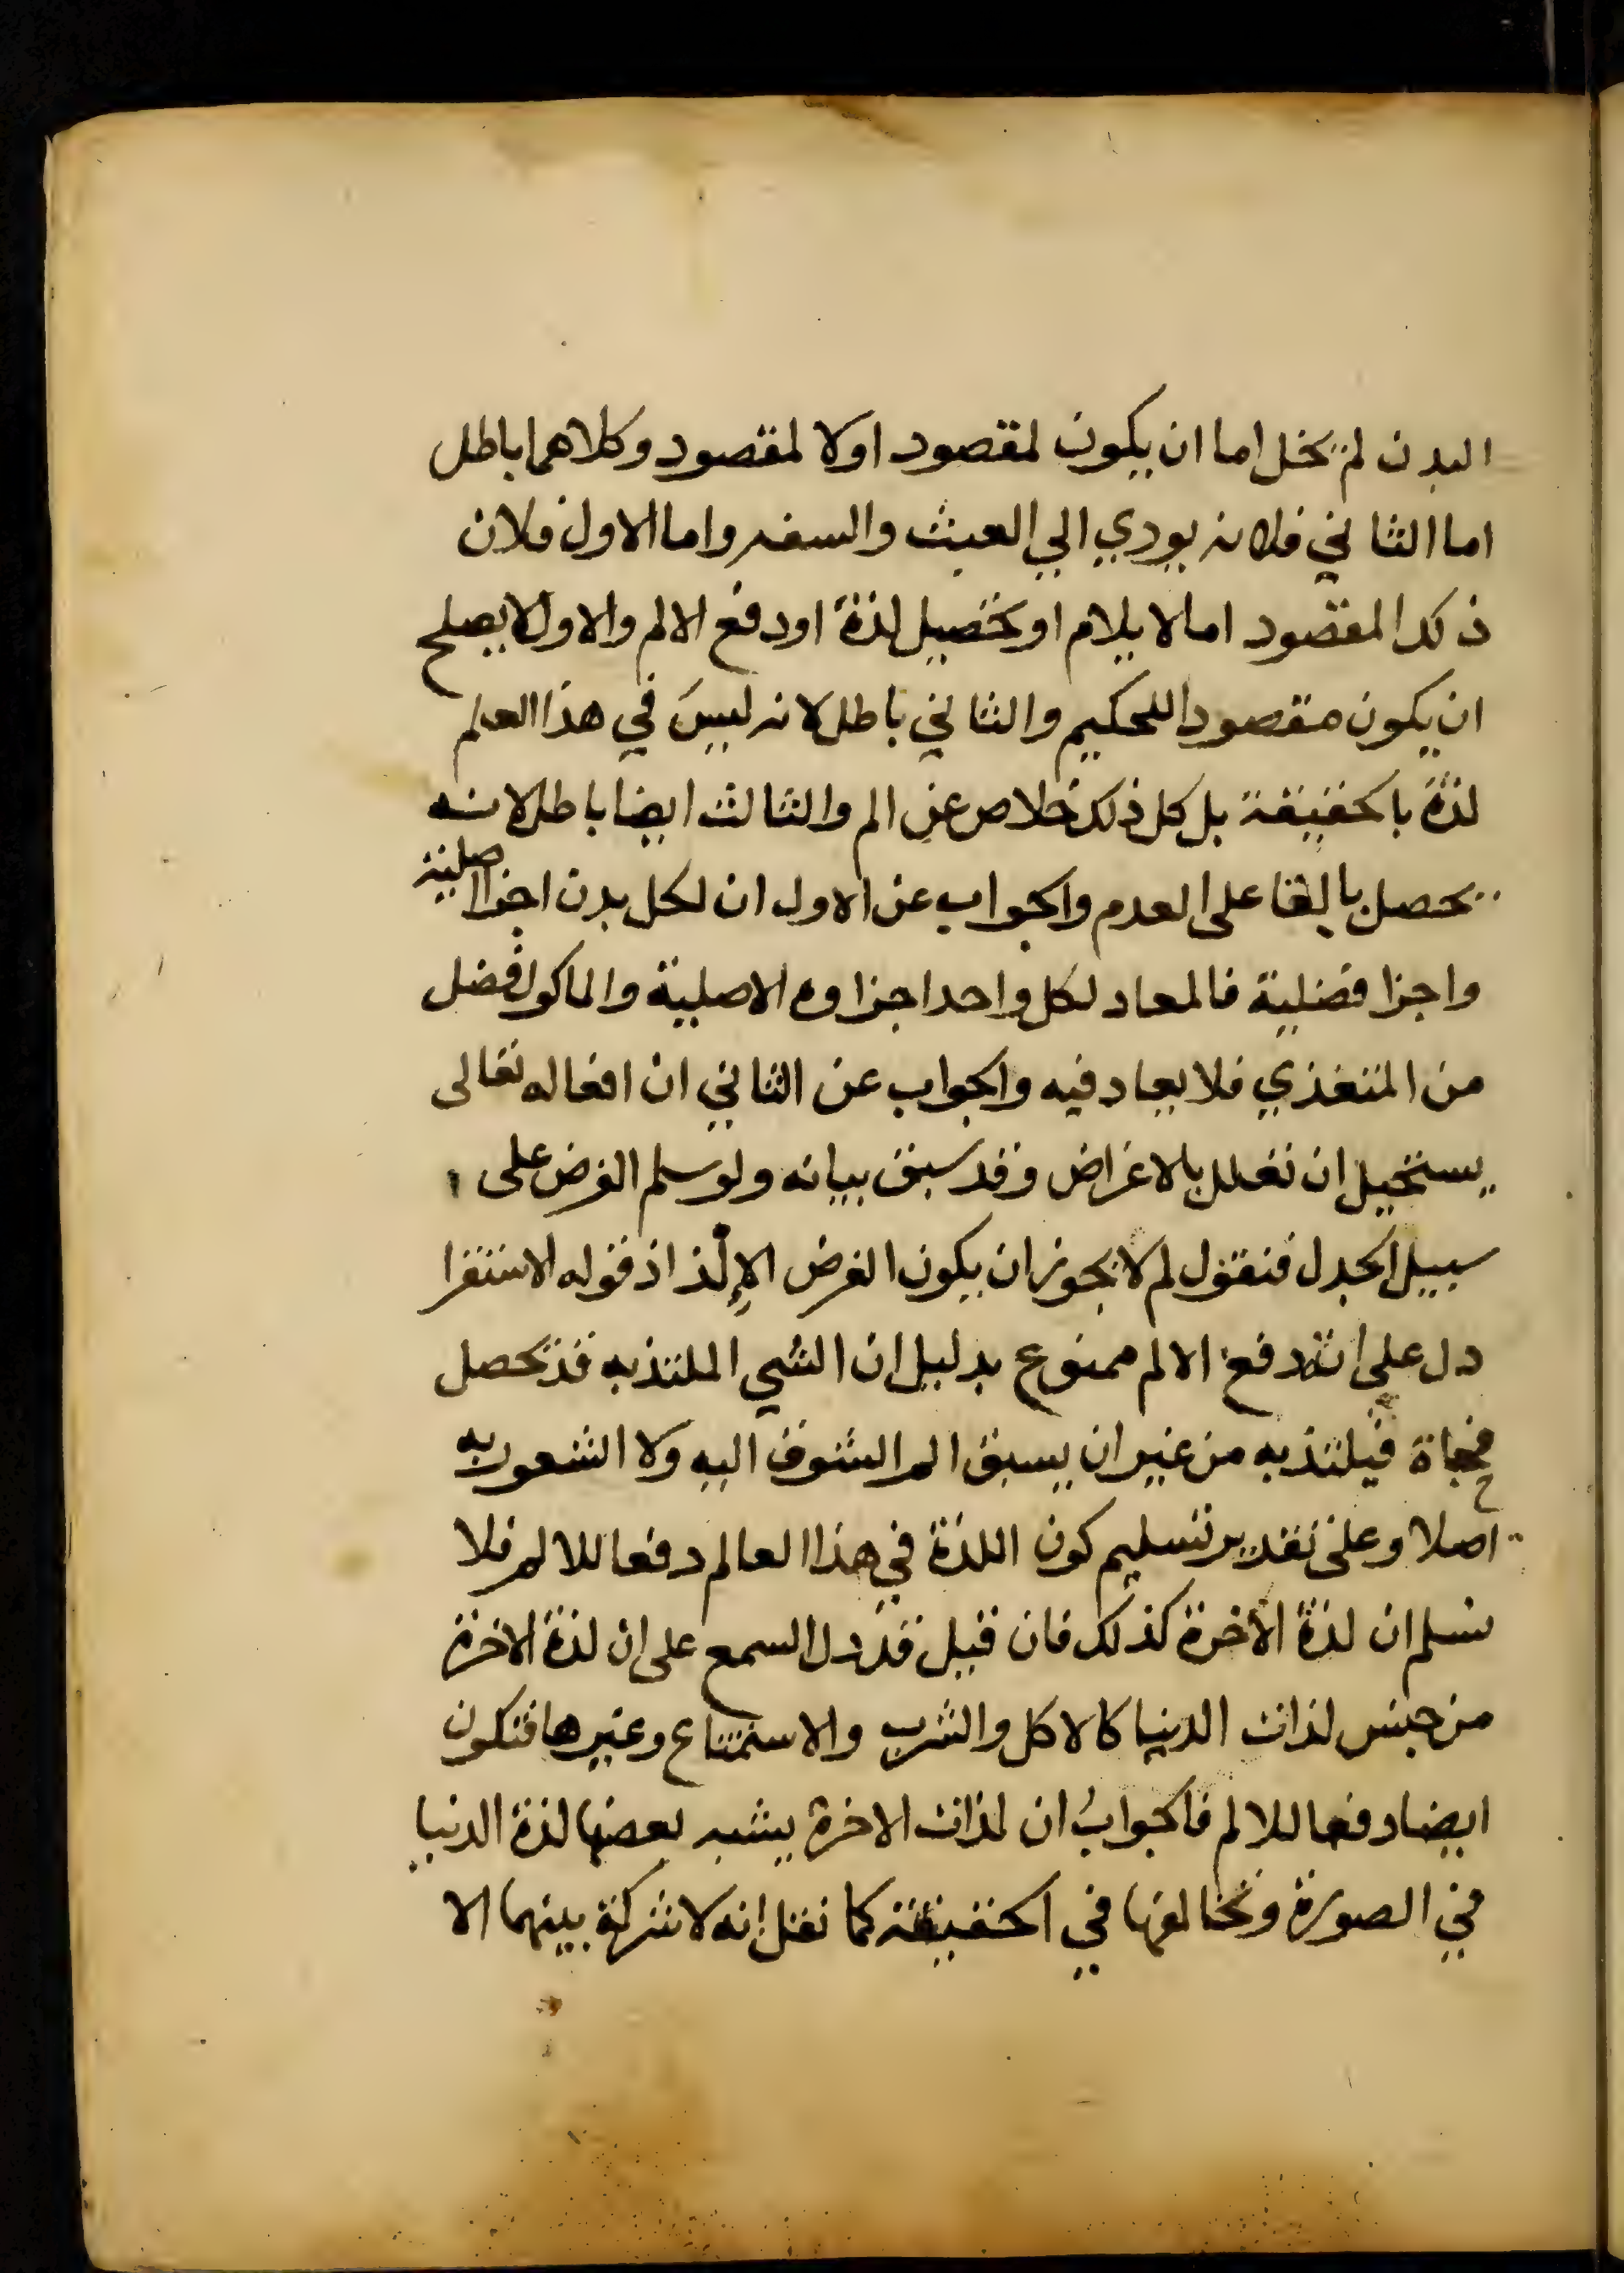 البدن لم يخل اما ان يكون لمقصود اولا لمقصود وكلاهما باطل
اما الثاني فلانه يودي الي العبث والسفه واما الاول فلان
ذلك المقصود اما الايلام او تحصيل لذة او دفع الالم والاول لا يصلح
ان يكون مقصودا للحكيم والثاني باطل لانه ليس في هذا العلم
لذة بالحقيقة بل كل ذلك خلاص عن الم والثالث ايضا باطل لانه
يحصل بالبقا على العدم والجواب عن الاول ان لكل بدن اجزا اصلية
واجزا فضلية فالمعاد لكل واحد اجزاوه الاصلية والماكول فضل
من المتغذي فلا يعاد فيه والجواب عن الثاني ان افعاله تعالى
يستحيل ان تعلل بالاغراض وقد سبق بيانه ولو سلم الغرض على
سبيل الجدل فنقول لم لا يجوز ان يكون الغرض الإلذاذ قوله الاستقرا
دل على انه دفع الالم ممنوع بدليل ان الشي الملتذ به قد تحصل
فجاة فيلتذ به من غير ان يسبق الم الشوق اليه ولا الشعور به
اصلا وعلى تقدير تسليم كون اللذة في هذا العالم دفعا للالم فلا
نسلم ان لذة الاخرة كذلك فان قيل قد دل السمع على ان لذة الاخرة
من جنس لذات الدنيا كالاكل والشرب والاستمتاع وغيرها فتكون
ايضا دفعا للالم فالجواب ان لذات الاخرة يشبه بعضها لذة الدنيا
في الصورة وتخالفها في الحقيقة كما نقل إنه لا شركة بينهما الا